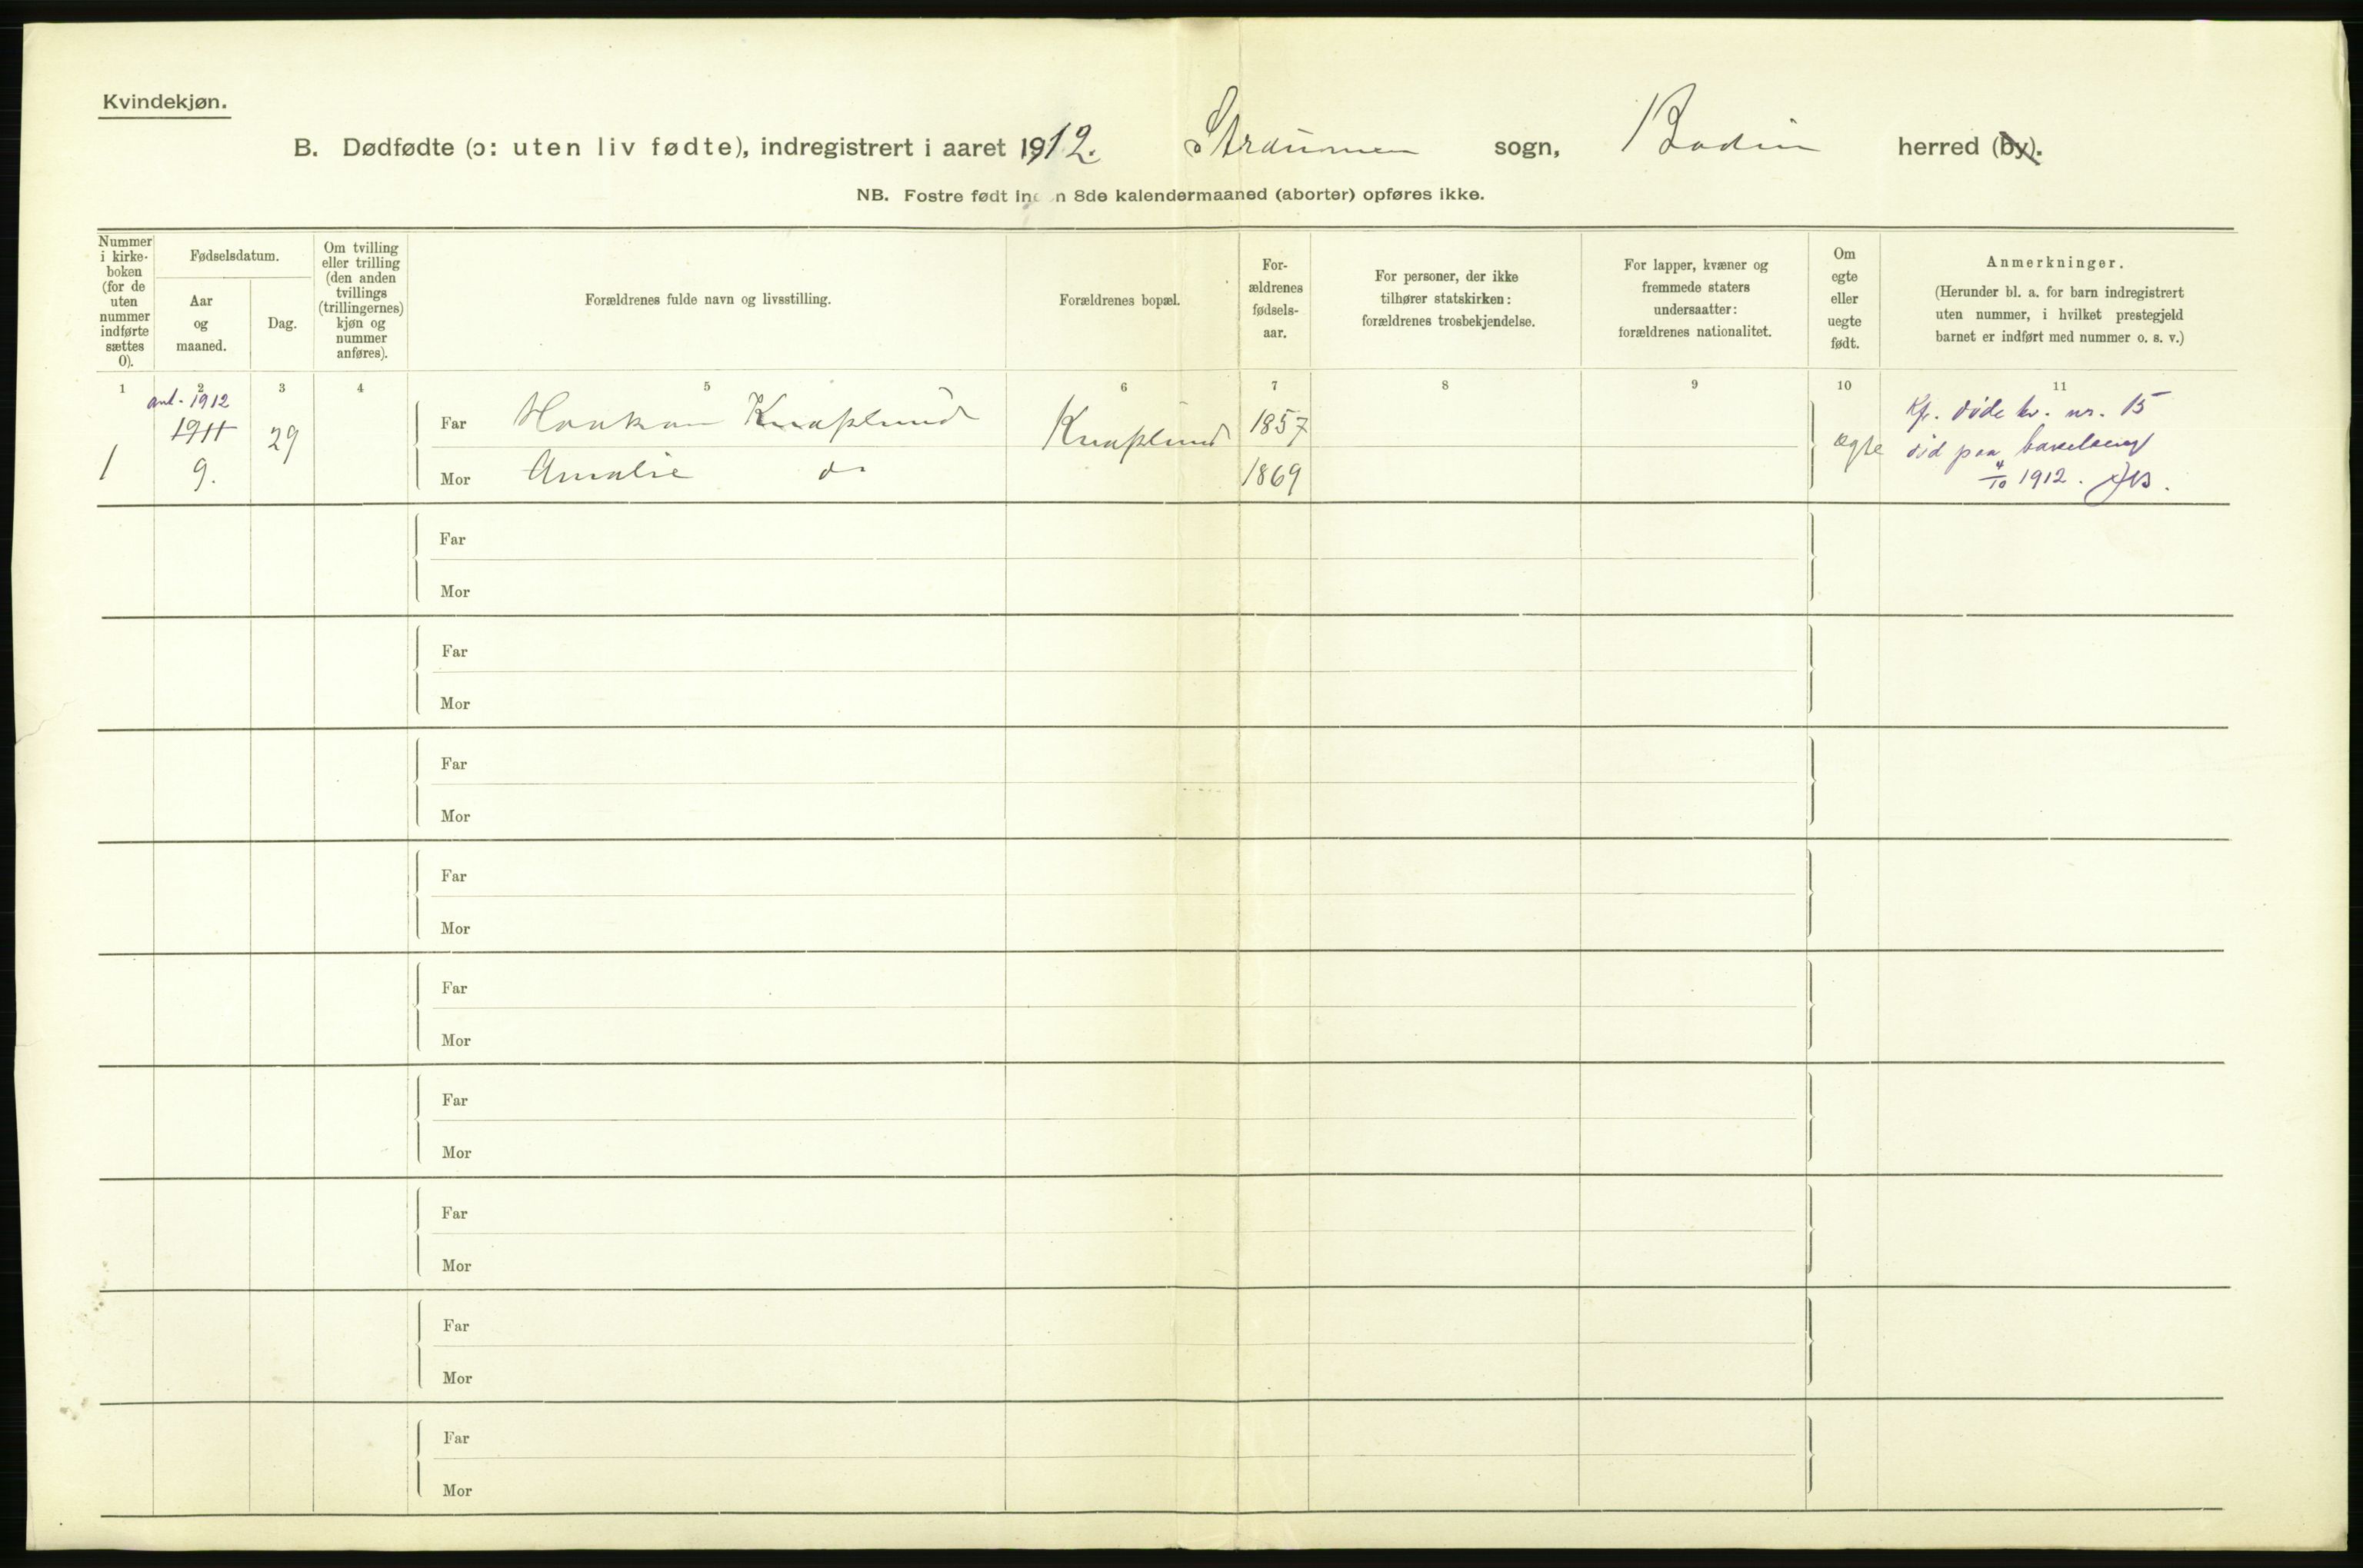 Kvindekjøn.
B. Dødfødte (ɔ: uten liv fødte), indregistrert i aaret 1912. Straumen sogn, Bodin herred (by).
NB. Fostre født inden 8de kalendermaaned (aborter) opføres ikke.
Nummer
i kirke-
boken
(for de
uten
nummer
indførte
sættes
0).
Fødselsdatum.
Aar
og
maaned.
Dag.
Om tvilling
eller trilling
(den anden
tvillings
(trillingernes)
kjøn og
nummer
anføres).
Forældrenes fulde navn og livsstilling.
Forældrenes bopæl.
For-
ældrenes
fødsels-
aar.
For personer, der ikke
tilhører statskirken:
forældrenes trosbekjendelse.
For lapper, kvæner og
fremmede staters
undersaatter:
forældrenes nationalitet.
Om
egte
eller
uegte
født.
Anmerkninger.
(Herunder bl. a. for barn indregistrert
uten nummer, i hvilket prestegjeld
barnet er indført med nummer o. s. v.)
1 2 3 4 5 6 7 8 9 10 11
ant. 1912
1911
1 9. 29
Far Haakon Knaplund
Mor Amalie do
Knaplund
1857
1869
ægte
Kfr. døde kv. nr. 15
død paa barselseng
4/10 1912.
Far
Mor
Far
Mor
Far
Mor
Far
Mor
Far
Mor
Far
Mor
Far
Mor
Far
Mor
Far
Mor